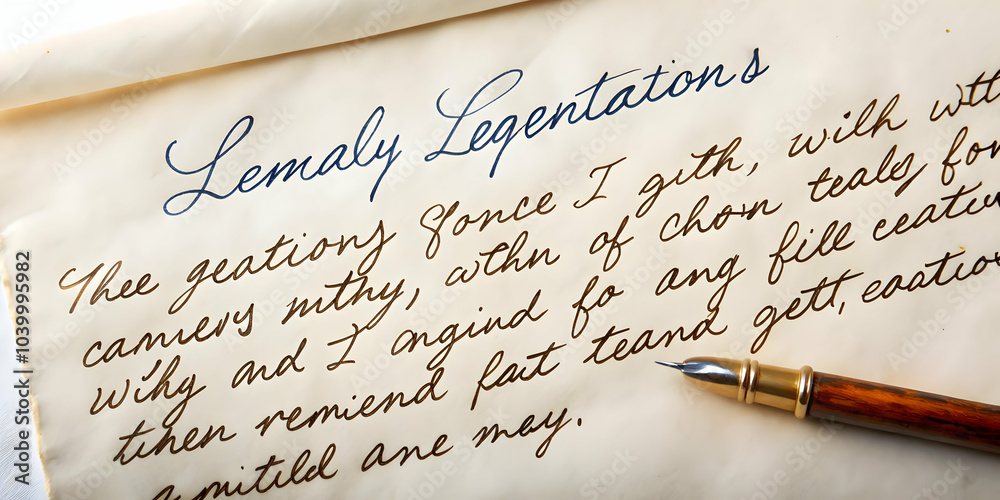 Lemaly Legentatons
Thee geationy fonce I guth, wilh wtt
camers mthy, wthn of chorn tealy for
Wihy and I ongind fo ang fille ceatu
tihen remiend fait teand gett, eaatio
amitild ane may.
Adobe Stock | #1039995982